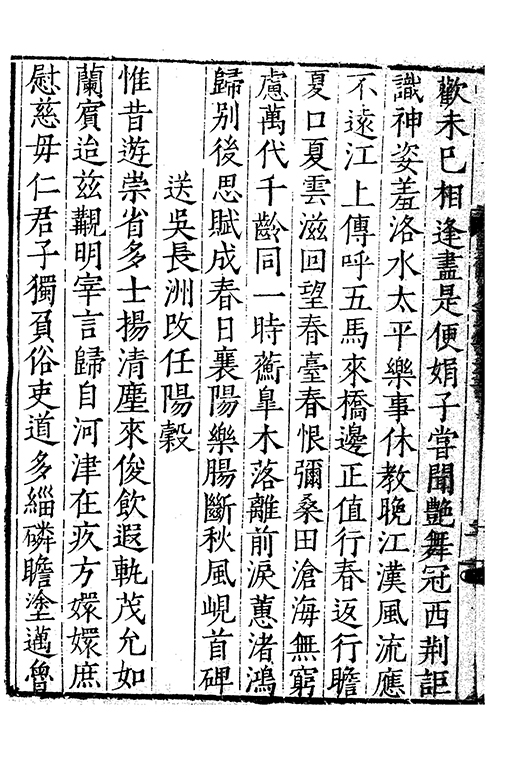 歡未已相逢盡是便娟子嘗聞艶舞冠西荆詎
識神姿羞洛水太平樂事休教晚江漢風流應
不遠江上傳呼五馬來橋邊正值行春返行瞻
夏口夏雲滋回望春臺春恨彌桑田滄海無窮
慮萬代千齡同一時蘅臯木落離前淚蕙渚鴻
歸别後思賦成春日襄陽樂腸斷秋風峴首碑
送吳長洲攺任陽穀
惟昔遊崇省多士揚清塵來俊飲遐軌茂允如
蘭賓迨兹覯明宰言歸自河津在疚方嬛嬛庶
慰慈毋仁君子獨負俗吏道多緇磷瞻塗邁魯